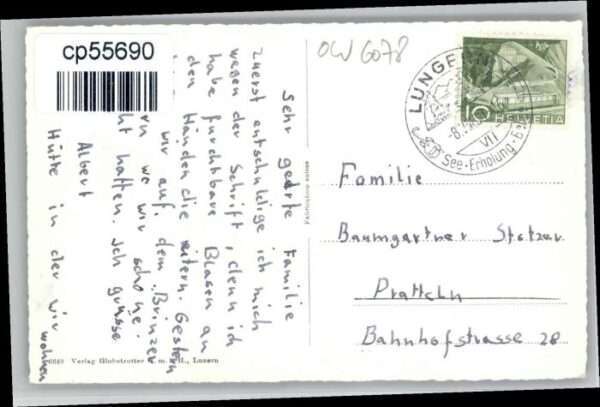 cp55690
OW 6078
LUNGERN
-8.
VII
See-Erholung-
10 HELVETIA
Sehr geerte Familie
zuerst entschuldige ich mich
wegen der Schrift, denn ich
habe furchtbare Blasen an
den Händen die eitern. Gestern
wir auf dem Brinzer
wo wir schöne
hatten. Ich grüsse
Albert
Hütte in der wir wohnen
Familie
Baumgartner Stotzer
Pratteln
Bahnhofstrasse 28
Verlag Globetrotter G. m. b. H., Luzern